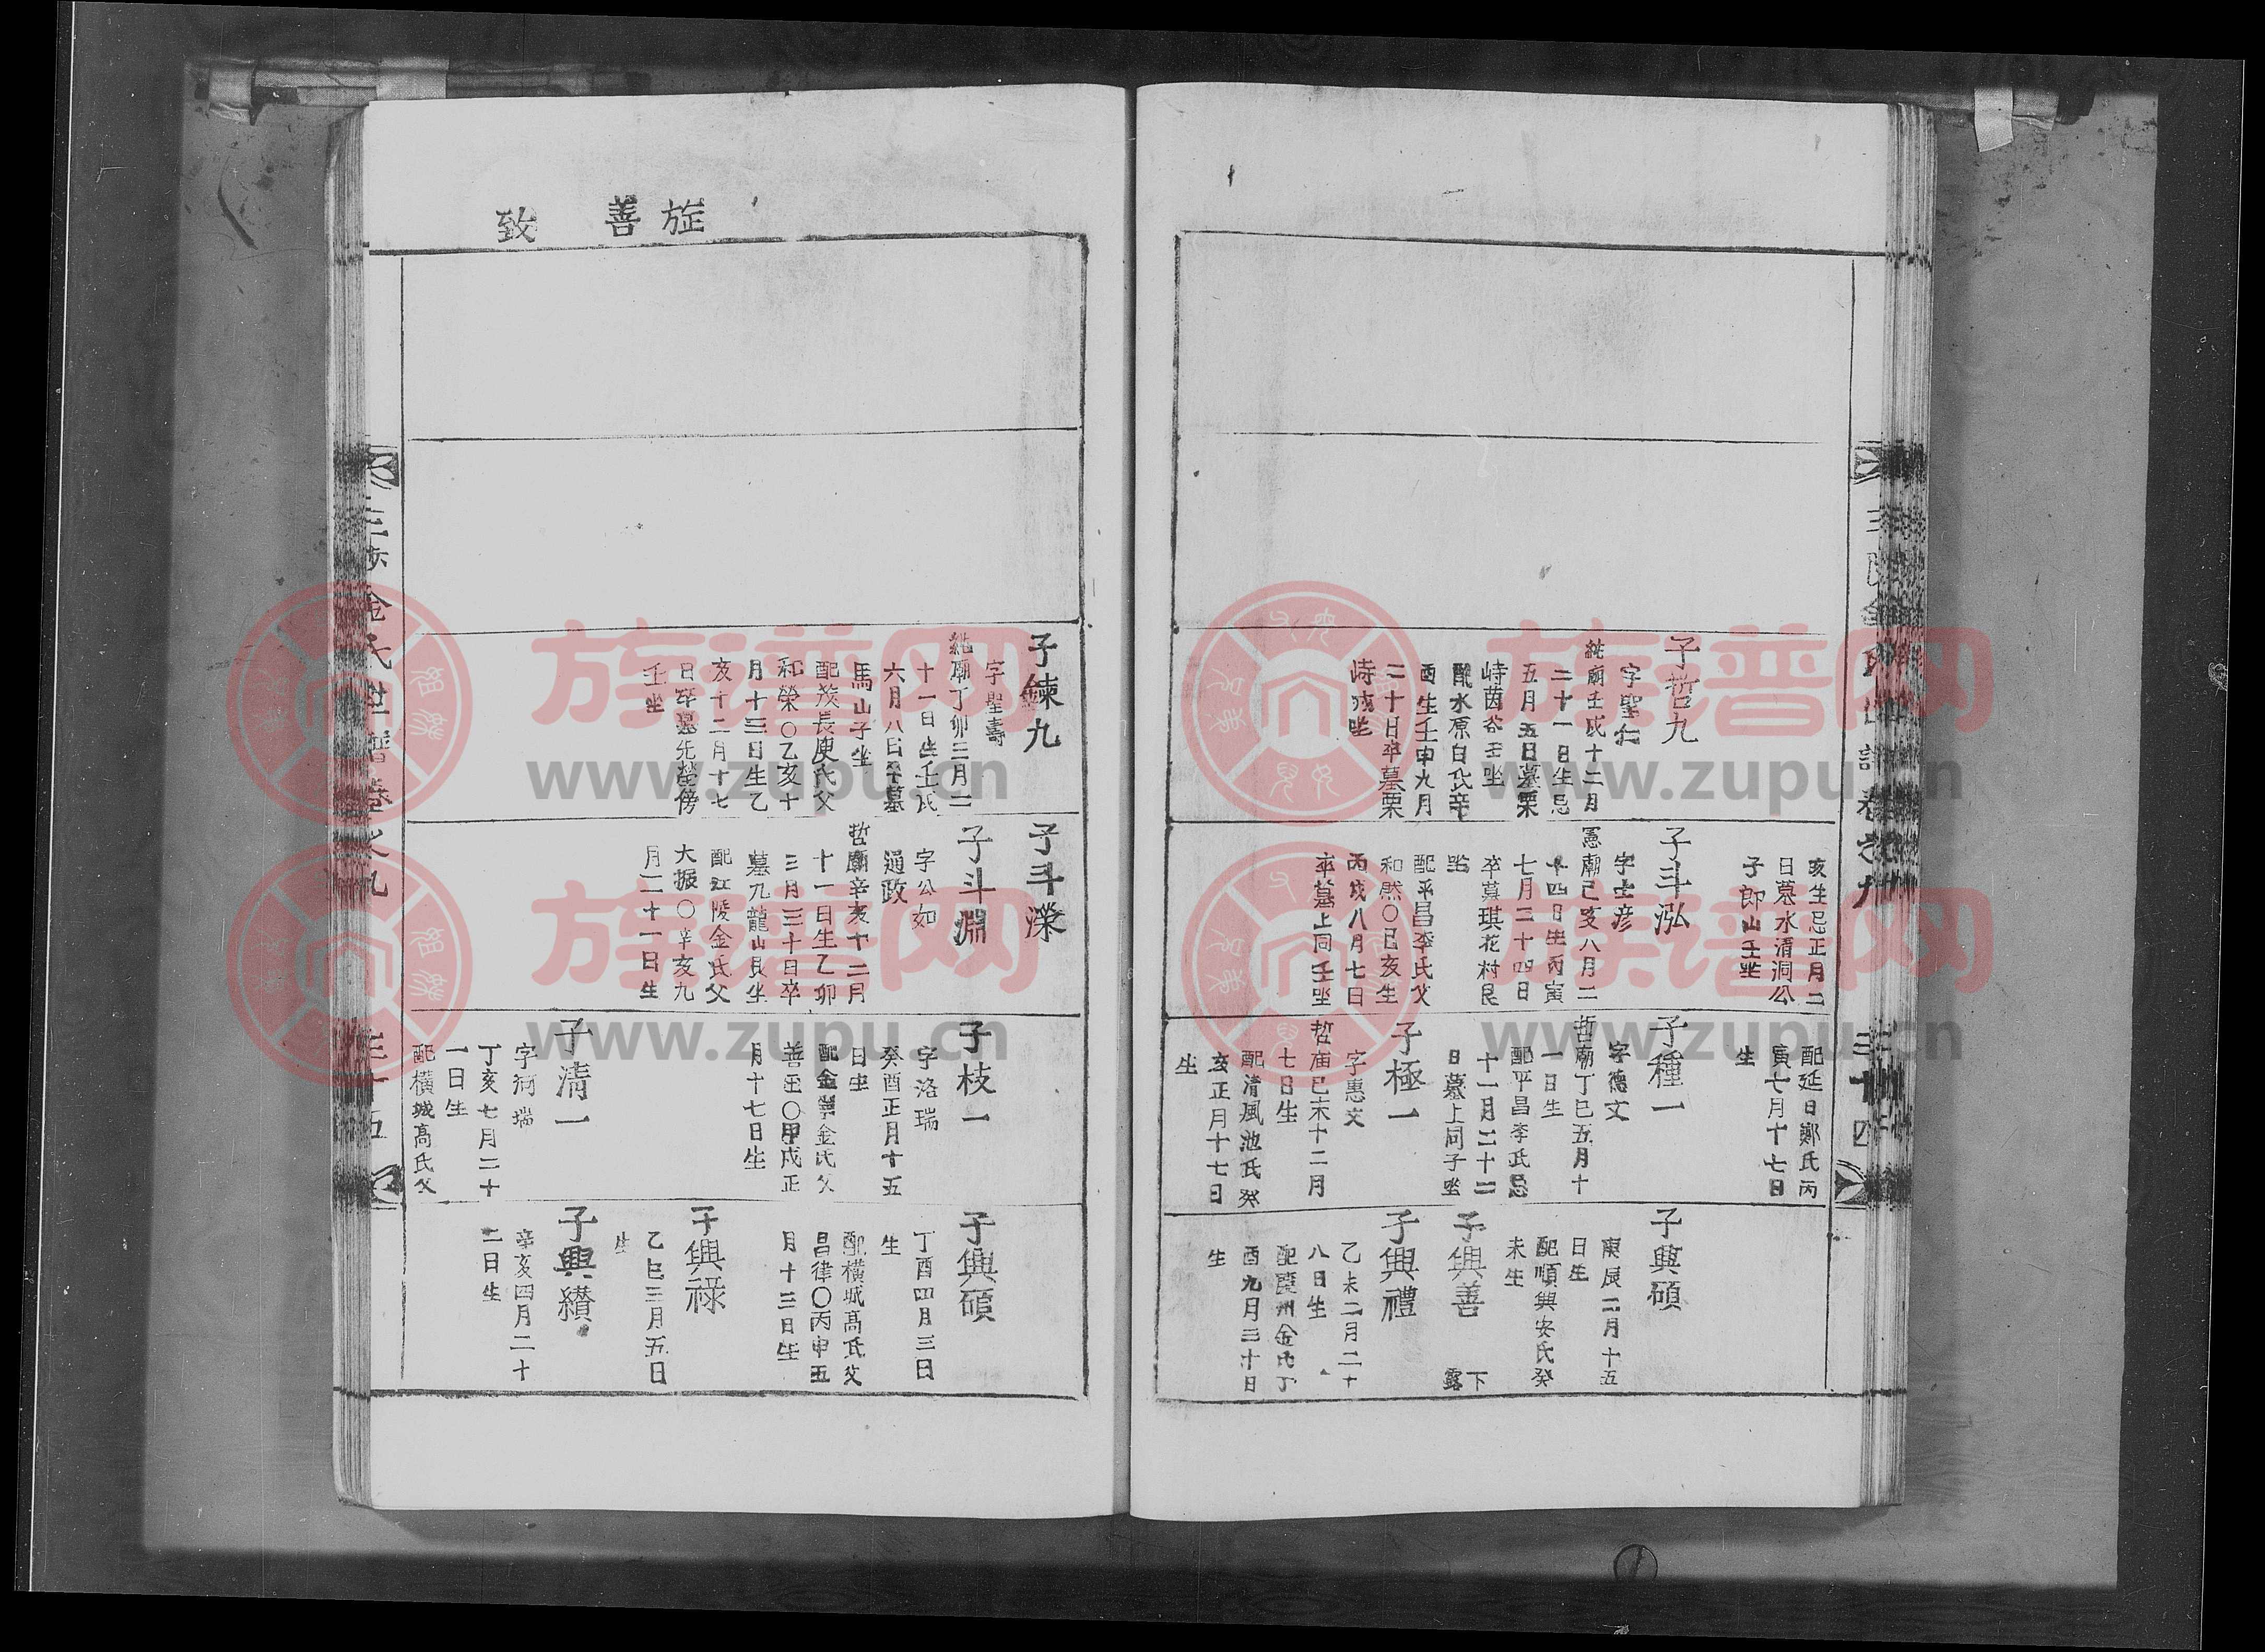 子哲九
字聖仁
純廟壬戌十二月
二十一日生忌
五月五日墓栗
峙茵谷壬坐
配水原白氏辛
酉生壬申九月
二十日卒墓栗
峙戌坐
亥生忌正月二
日墓水清洞公
子郎山壬坐
子斗泓
字士彦
憲廟己亥八月二
十四日生丙寅
七月二十四日
卒墓琪花村艮
坐
配平昌李氏父
和然〇己亥生
丙戌八月七日
卒墓上同壬坐
配延日鄭氏丙
寅七月十七日
生
子種一
字德文
哲廟丁巳五月十
一日生
配平昌李氏忌
十一月二十二
日墓上同子坐
子極一
字惠文
哲庙己未十二月
七日生
配清風池氏癸
亥正月十七日
生
子興碩
庚辰二月十五
日生
配順興安氏癸
未生
子興善
下
露
子興禮
乙未二月二十
八日生
配慶州金氏丁
酉九月三十日
生
三陟金氏世譜 卷之九
三十四
旌善
致
子鍊九
字聖壽
純廟丁卯三月二
十一日生壬戌
六月八日卒墓
馬山子坐
配茂長庾氏父
和榮〇乙亥十
月十三日生乙
亥十二月十七
日卒墓先塋傍
壬坐
子斗濼
子斗淵
字公如
通政
哲廟辛亥十二月
十一日生乙卯
三月三十日卒
墓九龍山艮坐
配江陵金氏父
大振〇辛亥九
月二十一日生
子枝一
字洛瑞
癸酉正月十五
日生
配金金氏父
善〇甲戌正
月十七日生
子清一
字瑞
丁亥七月二十
一日生
配橫城高氏父
子興碩
丁酉四月三日
生
配橫城高氏父
昌律〇丙申五
月十三日生
子興祿
乙巳三月五日
生
子興纘
辛亥四月二十
二日生
三陟金氏世譜卷之九
三十五
族谱网
www.zupu.cn
族谱网
www.zupu.cn
族谱网
www.zupu.cn
族谱网
www.zupu.cn